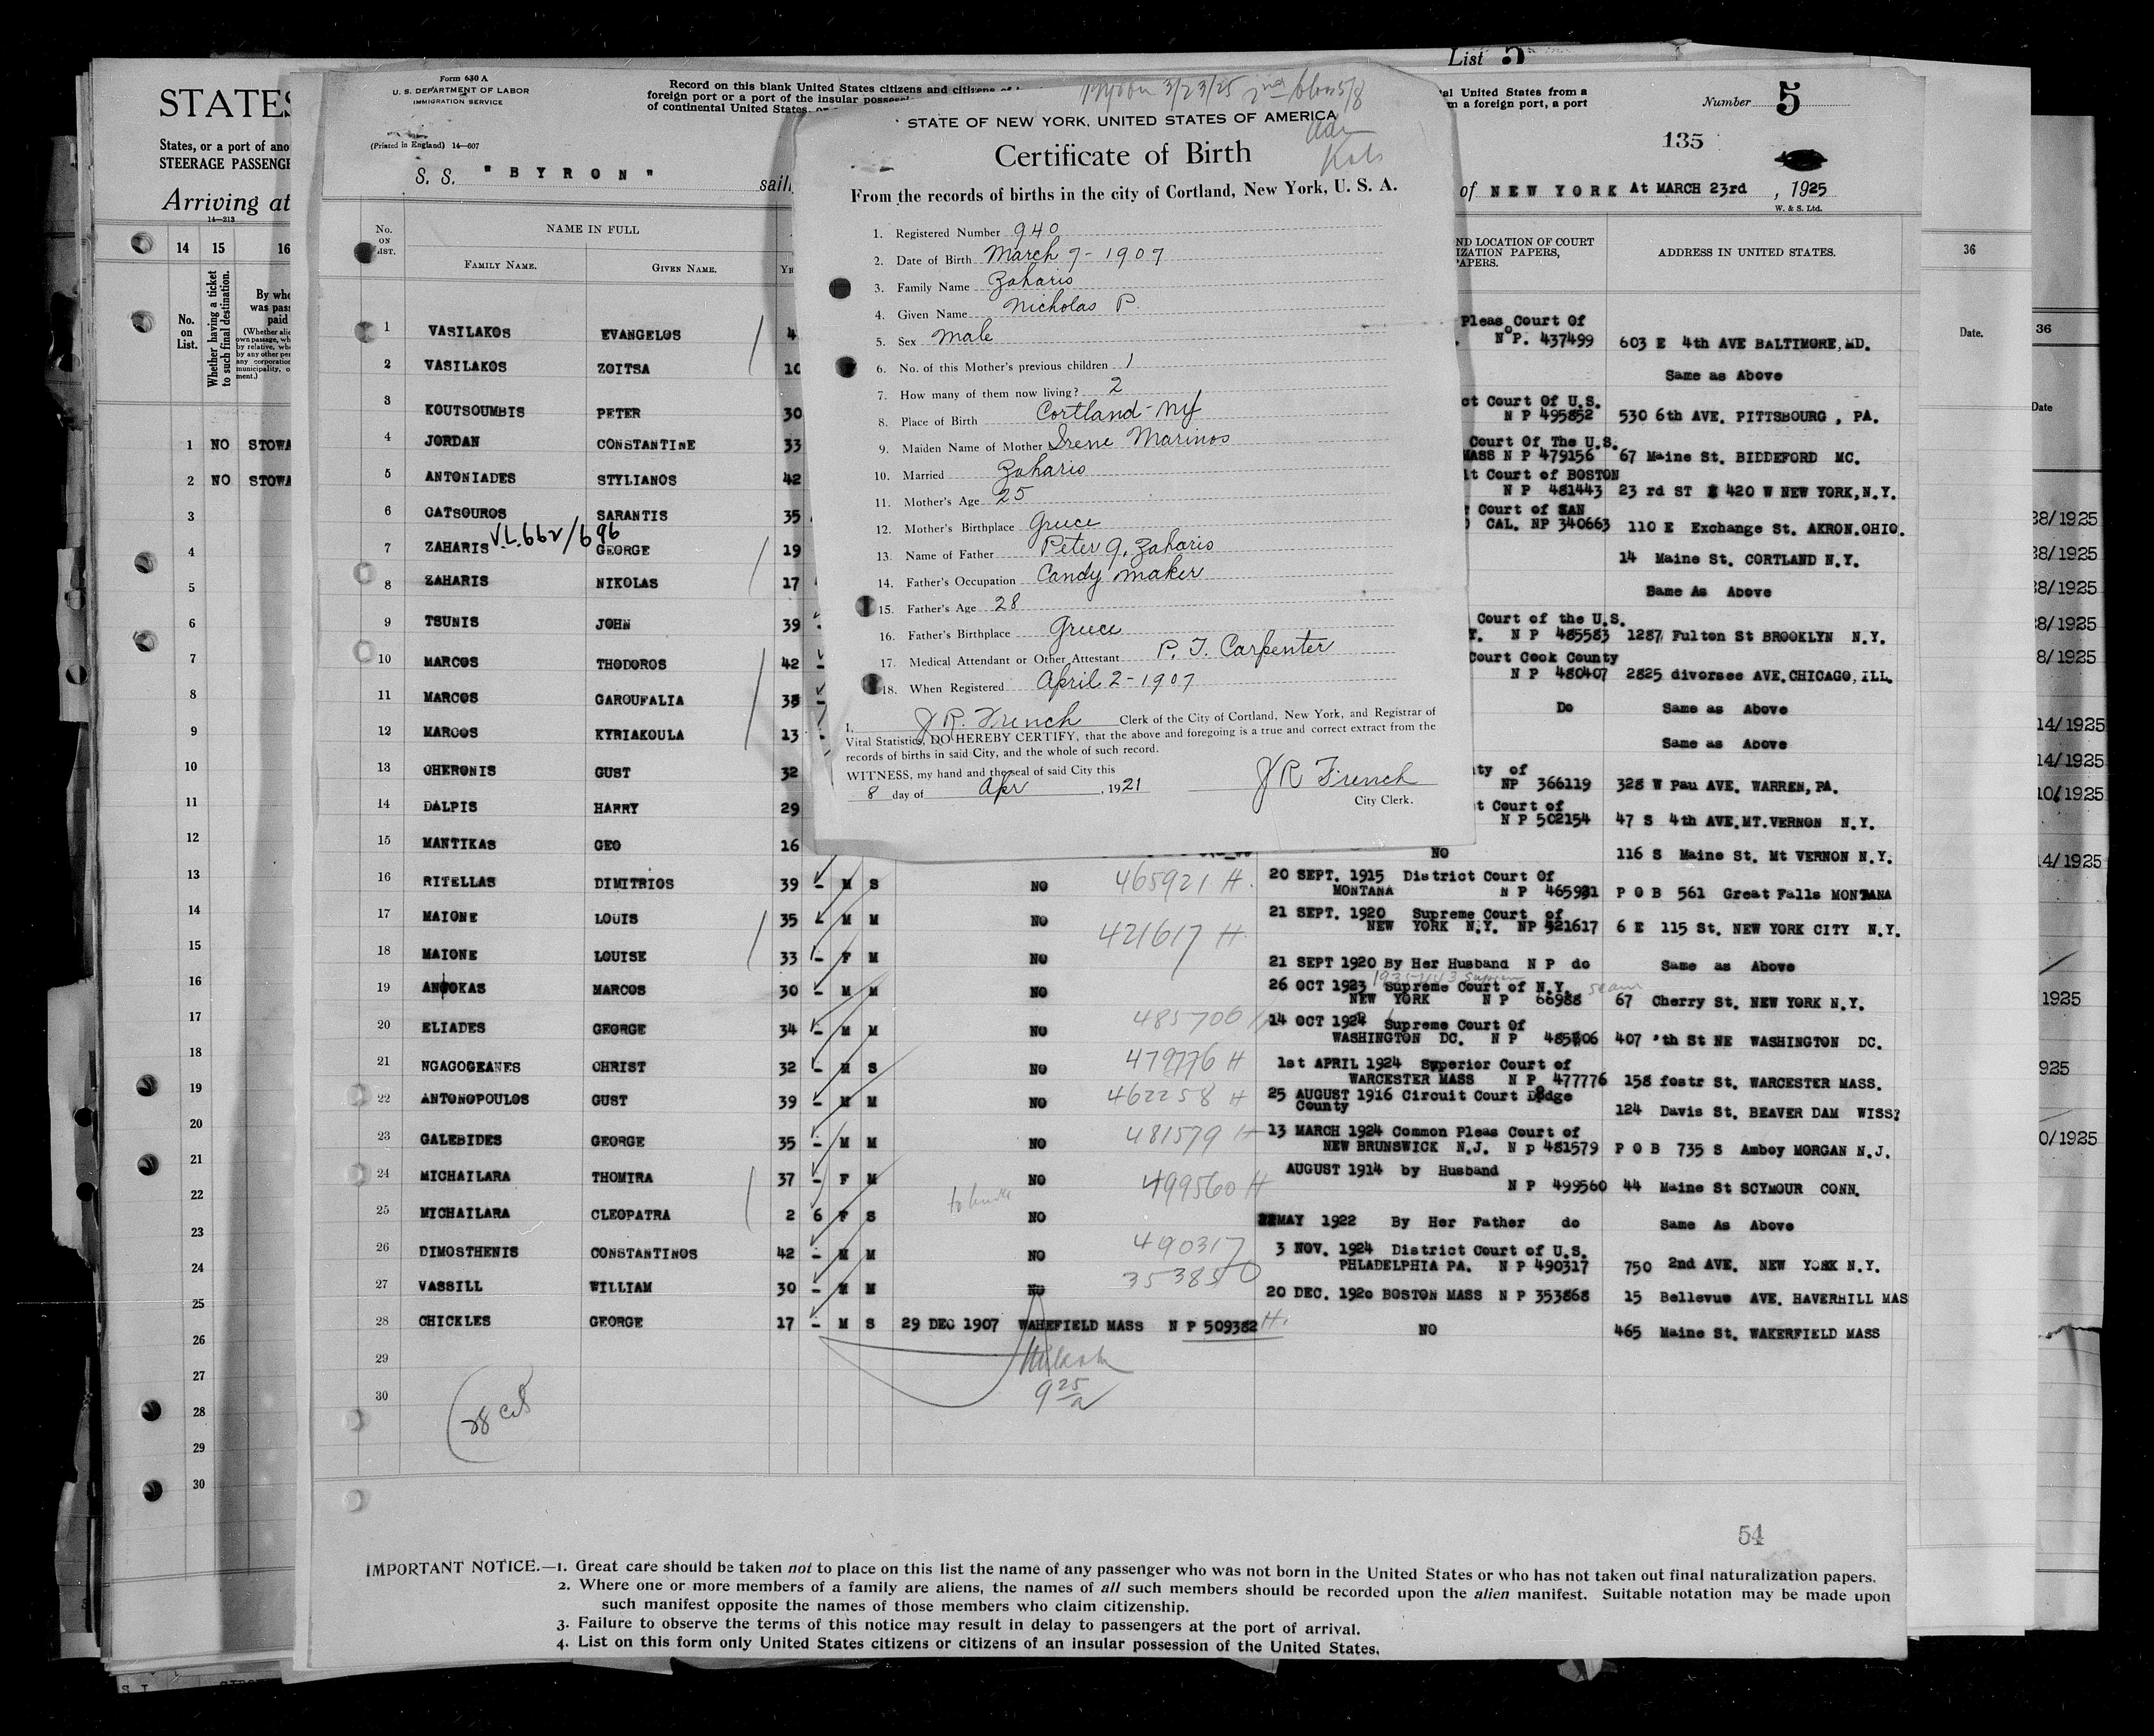 List 5
Form 630 A
U. S. DEPARTMENT OF LABOR
IMMIGRATION SERVICE
(Printed in England) 14—607
Record on this blank United States citizens and citizens of
foreign port or a port of the insular
of continental United States,
al United States from a
m a foreign port, a port
Number 5
135
S. S. "BYRON"
of NEW YORK At MARCH 23rd, 1925
W. & S. Ltd.
STATES
States, or a port of ano
STEERAGE PASSENGE
Arriving at
14—213
14 15 16
No. on List.
Whether having a ticket to such final destination.
By who
was pass
paid
1 NO STOWA
2 NO STOWA
3
4
5
6
7
8
9
10
11
12
13
14
15
16
17
18
19
20
21
22
23
24
25
26
27
28
29
30
3/23/25
STATE OF NEW YORK, UNITED STATES OF AMERICA
Certificate of Birth
From the records of births in the city of Cortland, New York, U. S. A.
1. Registered Number 940
2. Date of Birth March 7 - 1907
3. Family Name Zaharis
4. Given Name Nicholas P.
5. Sex Male
6. No. of this Mother's previous children 1
7. How many of them now living? 2
8. Place of Birth Cortland - NY
9. Maiden Name of Mother Irene Marinos
10. Married Zaharis
11. Mother's Age 25
12. Mother's Birthplace Greece
13. Name of Father Peter G. Zaharis
14. Father's Occupation Candy maker
15. Father's Age 28
16. Father's Birthplace Greece
17. Medical Attendant or Other Attestant P. T. Carpenter
18. When Registered April 2 - 1907
I, J R. French Clerk of the City of Cortland, New York, and Registrar of
Vital Statistics, DO HEREBY CERTIFY, that the above and foregoing is a true and correct extract from the
records of births in said City, and the whole of such record.
WITNESS, my hand and the seal of said City this
8 day of Apr, 1921
J R French
City Clerk.
No. ON LIST.
NAME IN FULL
FAMILY NAME. GIVEN NAME.
ND LOCATION OF COURT
IZATION PAPERS,
APERS.
ADDRESS IN UNITED STATES.
1 VASILAKOS EVANGELOS 4 Pleas Court Of N P. 437499 603 E 4th AVE BALTIMORE, MD.
2 VASILAKOS ZOITSA 10 Same as Above
3 KOUTSOUMBIS PETER 30 ct Court Of U.S. N P 495852 530 6th AVE. PITTSBOURG , PA.
4 JORDAN CONSTANTINE 33 Court Of The U.S. MASS N P 479156 67 Maine St. BIDDEFORD MC.
5 ANTONIADES STYLIANOS 42 it Court of BOSTON N P 481443 23 rd ST 420 W NEW YORK, N.Y.
6 CATSOUROS SARANTIS 35 Court of SAN CAL. NP 340663 110 E Exchange St. AKRON.OHIO.
V.L.662/696
7 ZAHARIS GEORGE 19 14 Maine St. CORTLAND N.Y.
8 ZAHARIS NIKOLAS 17 Same As Above
9 TSUNIS JOHN 39 Court of the U.S. N P 485583 1287 Fulton St BROOKLYN N.Y.
10 MARCOS THODOROS 42 Court Cook County N P 480407 2825 divorsee AVE. CHICAGO, ILL.
11 MARCOS GAROUFALIA 38 Do Same as Above
12 MARCOS KYRIAKOULA 13 Same as Above
13 CHERONIS GUST 32 ty of NP 366119 328 W Pau AVE. WARREN, PA.
14 DALPIS HARRY 29 t Court of N P 502154 47 S 4th AVE. MT.VERNON N.Y.
15 MANTIKAS GEO 16 NO 116 S Maine St. Mt VERNON N.Y.
16 RITELLAS DIMITRIOS 39 - M S NO 465921 H. 20 SEPT. 1915 District Court Of MONTANA N P 465931 P O B 561 Great Falls MONTANA
17 MAIONE LOUIS 35 - M M NO 421617 H. 21 SEPT. 1920 Supreme Court of NEW YORK N.Y. NP 421617 6 E 115 St. NEW YORK CITY N.Y.
18 MAIONE LOUISE 33 - F M NO 21 SEPT 1920 By Her Husband N P do Same as Above
19 MARCOS 30 - M M NO 26 OCT 1923 Supreme Court of N.Y. NEW YORK N P 66988 67 Cherry St. NEW YORK N.Y.
20 ELIADES GEORGE 34 - M M NO 485706 14 OCT 1924 Supreme Court Of WASHINGTON DC. N P 485706 407 'th St NE WASHINGTON DC.
21 NGAGOGEANES CHRIST 32 - M S NO 479776 H 1st APRIL 1924 Superior Court of WARCESTER MASS N P 477776 158 fostr St. WARCESTER MASS.
22 ANTONOPOULOS GUST 39 - M M NO 462258 H 25 AUGUST 1916 Circuit Court Dodge County 124 Davis St. BEAVER DAM WISS?
23 GALEBIDES GEORGE 35 - M M NO 481579 H 13 MARCH 1924 Common Pleas Court of NEW BRUNSWICK N.J. N p 481579 P O B 735 S Amboy MORGAN N.J.
24 MICHAILARA THOMIRA 37 - F M NO 499560 H AUGUST 1914 by Husband N P 499560 44 Maine St SCYMOUR CONN.
25 MICHAILARA CLEOPATRA 2 6 F S NO MAY 1922 By Her Father do Same As Above
26 DIMOSTHENIS CONSTANTINOS 42 - M M NO 490317 3 NOV. 1924 District Court of U.S. PHLADELPHIA PA. N P 490317 750 2nd AVE. NEW YORK N.Y.
27 VASSILL WILLIAM 30 - M M NO 353850 20 DEC. 1920 BOSTON MASS N P 353868 15 Bellevue AVE. HAVERHILL MAS
28 CHICKLES GEORGE 17 - M S 29 DEC 1907 WAHEFIELD MASS N P 509382 H. NO 465 Maine St. WAKERFIELD MASS
29
30
28 cit
54
IMPORTANT NOTICE.—1. Great care should be taken not to place on this list the name of any passenger who was not born in the United States or who has not taken out final naturalization papers.
2. Where one or more members of a family are aliens, the names of all such members should be recorded upon the alien manifest. Suitable notation may be made upon
such manifest opposite the names of those members who claim citizenship.
3. Failure to observe the terms of this notice may result in delay to passengers at the port of arrival.
4. List on this form only United States citizens or citizens of an insular possession of the United States.
36
Date.
36
Date
38/1925
38/1925
38/1925
38/1925
8/1925
14/1925
14/1925
10/1925
14/1925
1925
925
0/1925